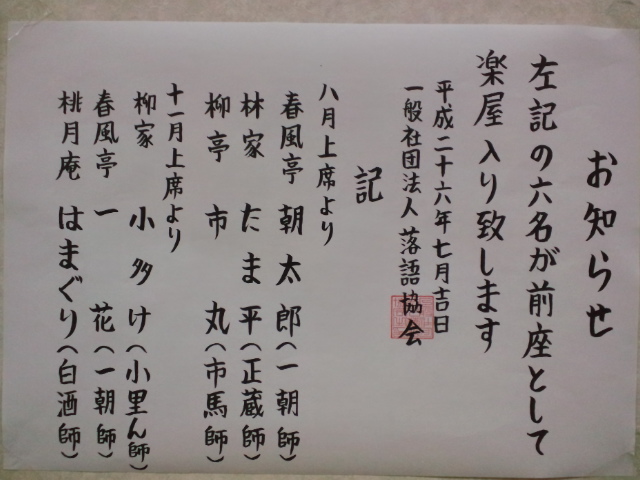 お知らせ
左記の六名が前座として
楽屋入り致します
平成二十六年七月吉日
一般社団法人 落語協会
記
八月上席より
春風亭 朝太郎(一朝師)
林家 たま平(正蔵師)
柳亭 市丸(市馬師)
十一月上席より
柳家 小多け(小里ん師)
春風亭 一花(一朝師)
桃月庵 はまぐり(白酒師)